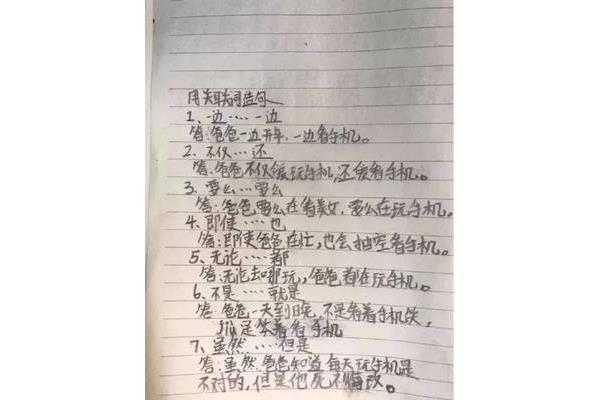 用关联词造句
1、一边……一边
答:爸爸一边开车,一边看手机。
2、不仅……还
答:爸爸不仅爱玩手机,还爱看手机。
3、要么…要么
答:爸爸要么在看美女,要么在玩手机。
4、即使……也
答:即使爸爸在忙,也会抽空看手机。
5、无论……都
答:无论去哪玩,爸爸都在玩手机。
6、不是……就是
答:爸爸一天到晚,不是看着手机笑,
jiù是笑着看手机
7、虽然……但是
答:虽然爸爸知道每天玩手机是
不对的,但是他死不悔改。